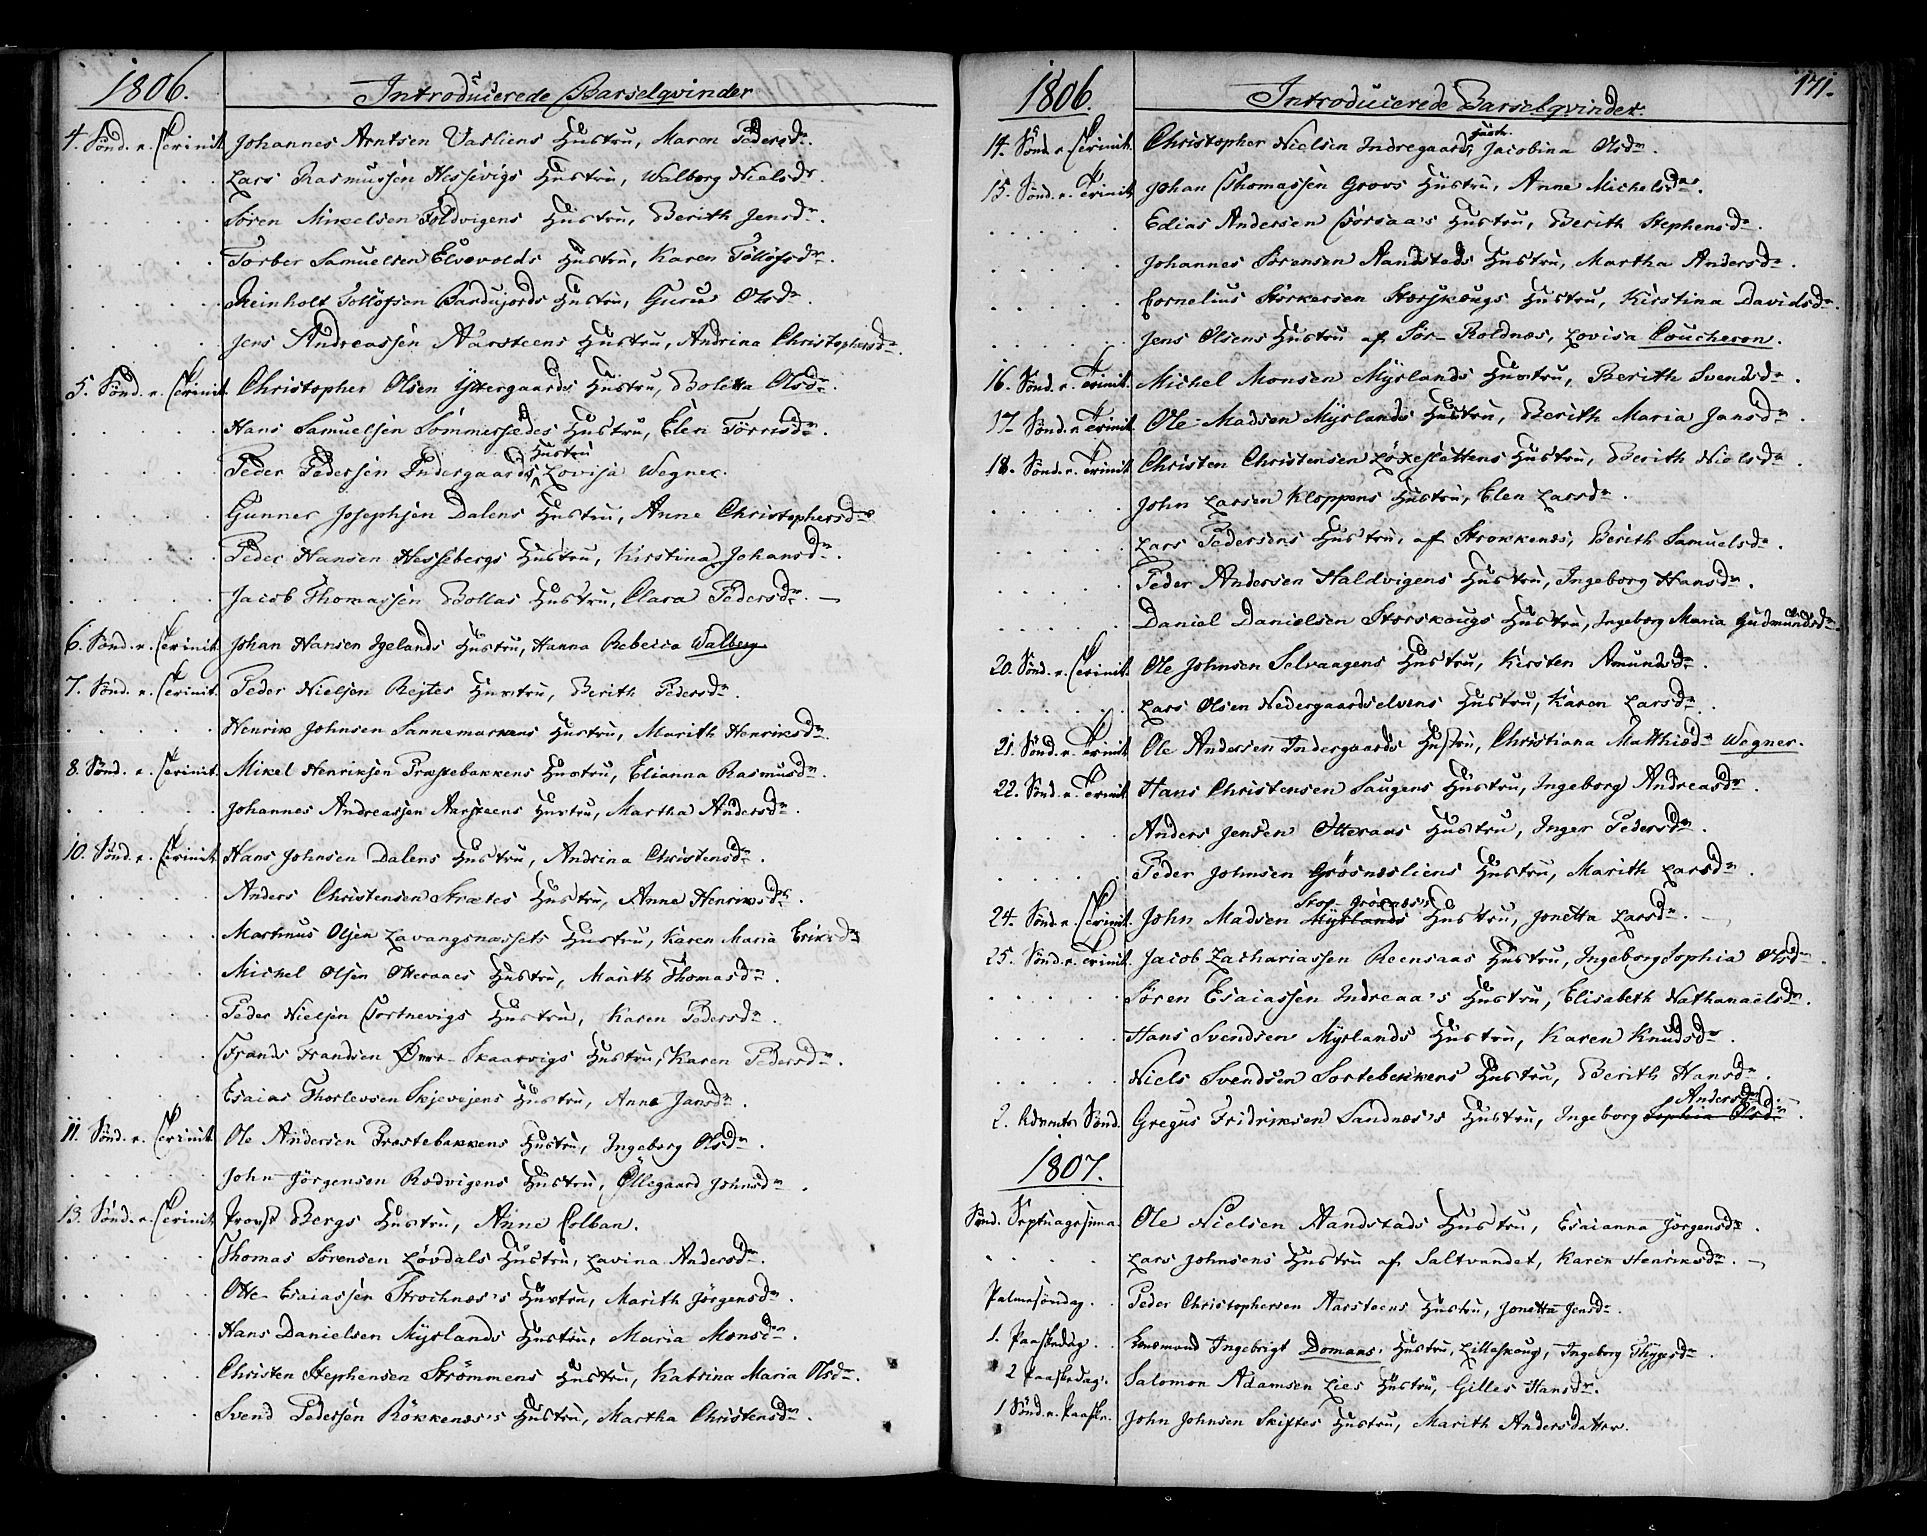 1806. Introducerede Barselqvinder
4. Sønd. e. Trinit. Johannes Arntsen Vasliens Hustru, Maren Pedersdr.
Lars Rasmussen Hessevigs Hustru, Walborg Nielsdr.
Søren Mikelsen Foldvigens Hustru, Berith Jensdr.
Torber Samuelsen Elvevolds Hustru, Karen Tollofsdr.
Reinholt Tollofsen Bardujords Hustru, Guru Olsdr.
Jens Andreassen Aarsteens Hustru, Andrina Christophersdr.
5. Sønd. e. Trinit. Christopher Olsen Yttergaards Hustru, Boletta Olsdr.
Hans Samuelsen Sommersædes Hustru, Elen Torrisdr.
Hustru
Peder Pedersen Indergaards, Lovisa Wegner.
Gunner Josephsen Dalens Hustru, Anne Christophersdr.
Peder Hansen Hessebergs Hustru, Kirstina Johansdr.
Jacob Thomassen Bollas Hustru, Clara Pedersdr.
6. Sønd. e. Trinit. Johan Hansen Igelands Hustru, Hanna Rebecca Walberg
7. Sønd. e. Trinit. Peder Nielsen Rejtes Hustru, Berith Pedersdr.
Henrik Johnsen Sannemarkens Hustru, Marith Henriksdr.
8. Sønd. e. Trinit. Mikel Henriksen Præstebakkens Hustru, Elianna Rasmusdr.
Johannes Andreassen Aarsteens Hustru, Martha Andersdr.
10. Sønd. e. Trinit. Hans Johnsen Dalens Hustru, Andrina Christensdr.
Anders Christensen Strætes Hustru, Anna Henriksdr.
Martinus Olsen Lavangsnæssets Hustru, Karen Maria Eriksdr
Michel Olsen Otteraaes Hustru, Marith Thomasdr.
Peder Nielsen Tortnevigs Hustru, Karen Pedersdr.
Frands Frandsen Øvre-Skaarvigs Hustru, Karen Pedersdr.
Esaias Thorlevsen Skjevejens Hustru, Anne Jansdr.
11. Sønd. e. Trinit. Ole Andersen Præstebakkens Hustru, Ingeborg Olsdr.
John Jörgensen Rodvigens Hustru, Öllegaard Johnsdr.
13. Sønd. e. Trinit. Provst Bergs Hustru, Anne Colban.
Thomas Sörensen Løvdals Hustru, Lavina Andersdr.
Otte Esaiassen Strochnæs's Hustru, Marith Jörgensdr.
Hans Danielsen Myrlands Hustru, Maria Monsdr.
Christen Stephensen Strömmens Hustru, Katrina Maria Olsdr.
Svend Pedersen Rökkenæs's Hustru, Martha Christensdr.
171.
1806. Introducerede Barselqvinder.
Hustr.
14. Sønd. e. Trinit. Christopher Nielsen Indregaards, Jacobina Olsdr.
15. Sønd. e. Trinit. Johan Thomassen Groos Hustru, Anne Michelsdr.
Edias Andersen Torsaa's Hustru, Berith Stephensdr.
Johannes Sørensen Aandsteds Hustru, Martha Andersdr.
Cornelius Störkersen Storskougs Hustru, Kirstina Davidsdr.
Jens Olsens Hustru af Sör-Roldnæs, Lovisa Coucheron.
16. Sønd. e. Trinit. Michel Monsen Myrlands Hustru, Berith Svendsdr.
17. Sønd. e. Trinit. Ole Madsen Myrlands Hustru, Berith Maria Jansdr.
18. Sønd. e. Trinit. Christen Christensen Løxeslettens Hustru, Berith Nielsdr.
John Larsen Kloppens Hustru, Elen Larsdr.
Lars Pedersens Hustru, af Strokkenæs, Berith Samuelsdr.
Peder Andersen Haldvigens Hustru, Ingeborg Hansdr.
Daniel Danielsen Storskougs Hustru, Ingeborg Maria Gudmundsdr.
20. Sønd. e. Trinit. Ole Johnsen Selvaagens Hustru, Kirsten Amundsdr.
Lars Olsen Nedergaardselvens Hustru, Karen Larsdr.
21. Sønd. e. Trinit. Ole Andersen Indergaards Hustru, Christiana Matthiædr Wegner.
22. Sønd. e. Trinit. Hans Christensen Saugens Hustru, Ingeborg Andreasdr.
Anders Jensen Otteraas Hustru, Inger Pedersdr.
Peder Johnsen Grösnæsliens Hustru, Marith Larsdr.
Stor-Grösnæs's
24. Sønd. e. Trinit. John Madsen Myrlands Hustru, Jonetta Larsdr.
25. Sønd. e. Trinit. Jacob Zachariassen Reensaas Hustru, Ingeborg Sophia Olsdr.
Søren Esaiassen Indreaa's Hustru, Elisabeth Nathanaelsdr.
Hans Svendsen Myrlands Hustru, Karen Knudsdr.
Niels Svendsen Sortebekkens Hustru, Berith Hansdr.
Andersdr.
2. Advents Sønd. Gregus Fridriksen Sandnæs's Hustru, Ingeborg Sophia Olsdr
1807.
Sønd. Septuagesima. Ole Nielsen Aandstads Hustru, Esaianna Jörgensdr.
Lars Johnsens Hustru af Saltvandet, Karen Henriksdr.
Palmesøndag. Peder Christophersen Aarsteens Hustru, Jonetta Jensdr.
1. Paaskedag. Lensmand Ingebrigt Domaas' Hustru, Lilleskoug, Ingeborg Thygesdr.
2 Paaskedag. Salomon Adamsen Lies Hustru, Gilles Hansdr.
1 Sønd. e. Paaske. John Johnsen Skiftes Hustru, Marith Andersdatter.